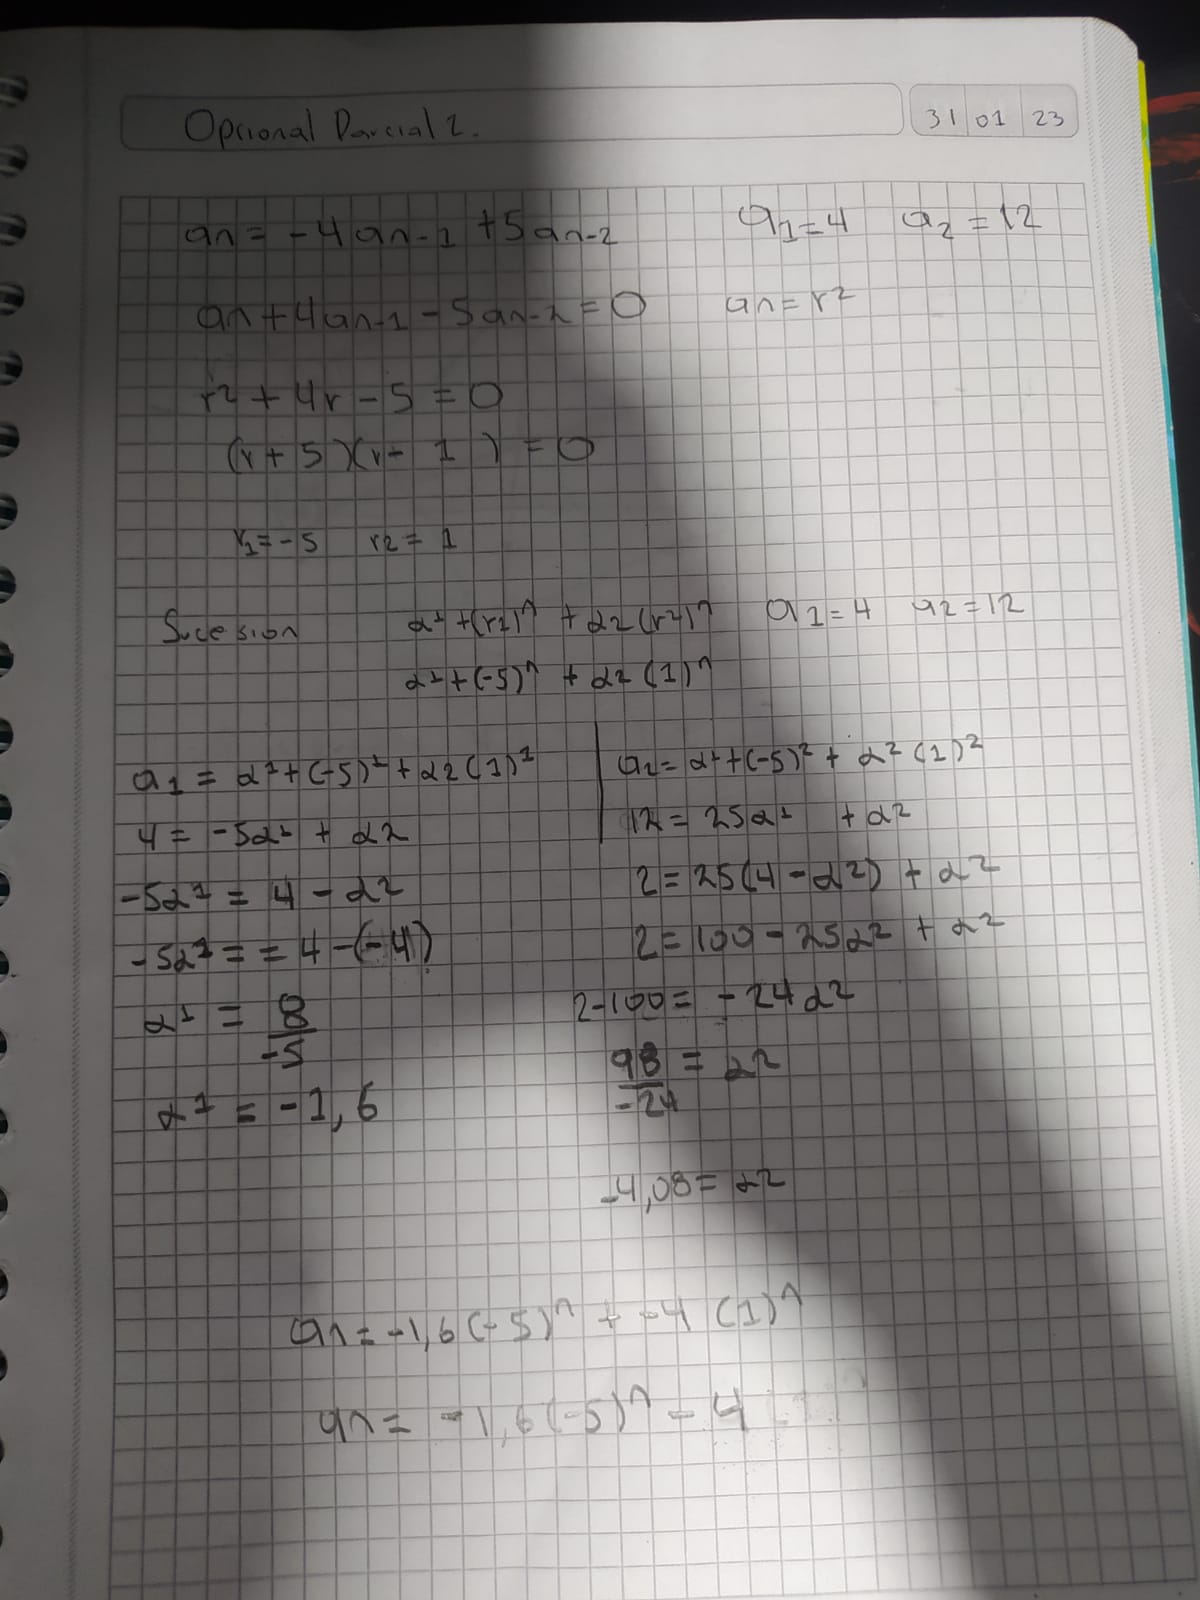 Opcional Parcial 2.
31 01 23
an = -4an-1 +5an-2 a1=4 a2=12
an+4an-1-5an-2=0 an=r²
r²+4r-5=0
(r+5)(r-1)=0
r1=-5 r2=1
Sucesion α1+(r1)^n + α2(r2)^n a1=4 a2=12
α1+(-5)^n + α2(1)^n
a1 = α1+(-5)¹+α2(1)¹
4 = -5α1 + α2
-5α1 = 4-α2
-5α1 = = 4-(-4)
α1 = 8/-5
α1 = -1,6
a2=α1+(-5)²+α2(1)²
12=25α1 +α2
2=25(4-α2)+α2
2=100-25α2+α2
2-100=-24α2
98/-24=α2
-4,08=α2
an=-1,6(-5)^n+-4(1)^n
an= -1,6(-5)^n-4